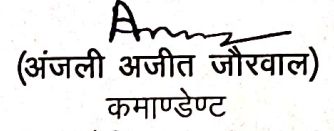 (अंजली अजीत जौरवाल)
कमाण्डेण्ट